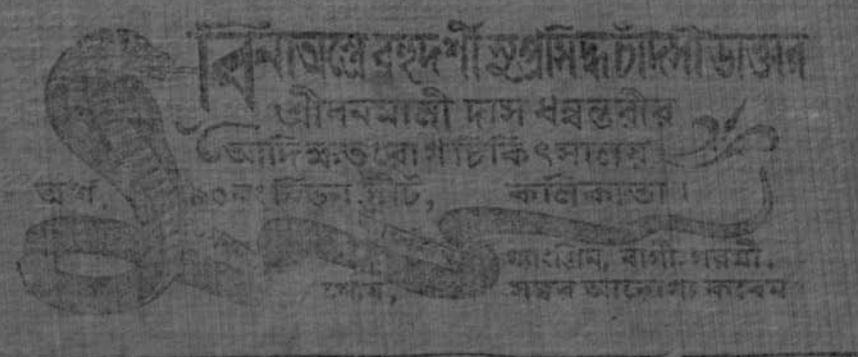 বিনা অস্ত্রে বহুদর্শী সুপ্রসিদ্ধ চাঁদসী ডাক্তার
শ্রীবনমালী দাস ধন্বন্তরীর
আদি ক্ষতরোগ চিকিৎসালয়
অর্শ, ষ্ট্রীট, কলিকাতা।
বাগী, গরমী,
সত্বর আরোগ্য করেন